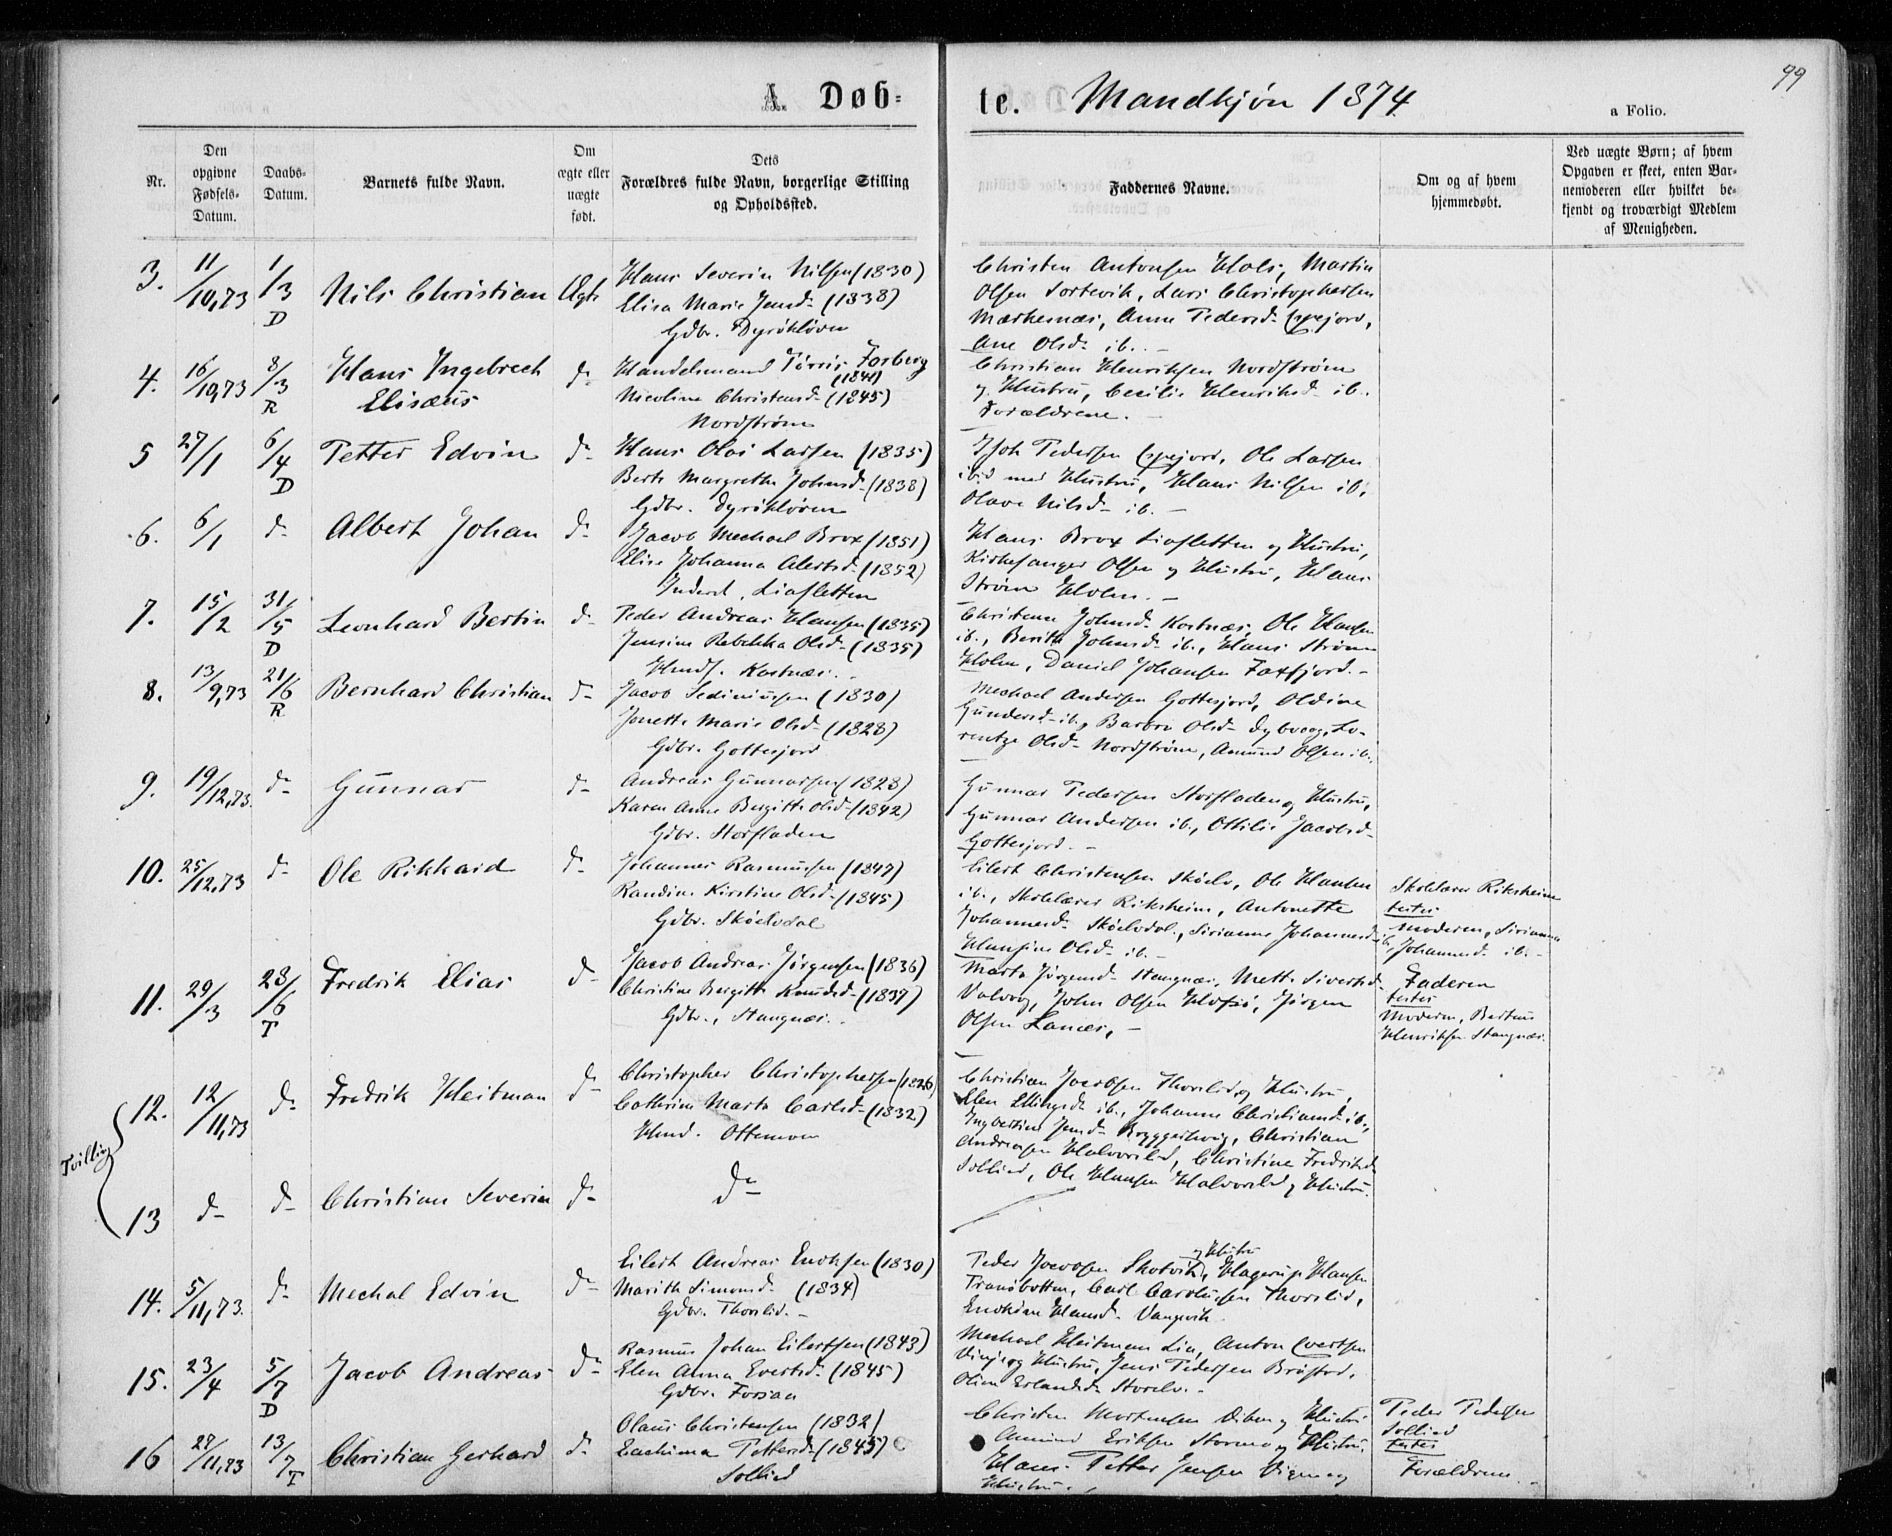 99
A. Døb-
te. Mandkjøn 1874
a Folio.
Nr.
Den
opgivne
Fødsels-
Datum.
Daabs-
Datum.
Barnets fulde Navn.
Om
ægte eller
uægte
født.
Dets
Forældres fulde Navn, borgerlige Stilling
og Opholdssted.
Faddernes Navne.
Om og af hvem
hjemmedøbt.
Ved uægte Børn; af hvem
Opgaven er skeet, enten Bar-
nemoderen eller hvilket be-
kjendt og troværdigt Medlem
af Menigheden.
3. 11/10,73 1/3 D Nils Christian Ægte
Hans Severin Nilsen (1830)
Elisa Marie Jensd- (1838)
Gdbr. Dyrikløven
Christen Antonsen Hols, Martin
Olsen Sortevik, Lars Christophersen
Mærkesnæs, Anne Pedersd-
Ane Olsd- ib.-
4. 16/10,73 8/3 R Hans Ingebrecht
Elisæus
d-
Handelsmand Tørris Forberg
(1841)
Nicoline Christensd- (1845)
Nordstrøm
Christian Henriksen Nordstrøm
og Hustru, Cecilie Henriksd- ib.
Forældrene.-
5 27/1 6/4 D Petter Edvin d-
Hans Olai Larsen (1835)
Berte Margrethe Johnsd- (1838)
Gdbr. Dyrikløven
Pedersen Ole Larsen
ibid med Hustru, Hans Nilsen ib,
Olava Nilsd- ib.-
6. 6/1 d- Albert Johan d-
Jacob Mechael Brox (1851)
Elise Johanna d- (1852)
Inderst, Liasletten
Hans Brox Liasletten og Hustru,
Kirkesanger Olsen og Hustru, Hans
Strøm Holm.-
7. 15/2 31/5 D Leonhard Bertin d-
Peder Andreas Hansen (1835)
Jensine Rebekka Olsd- (1835)
Husm. Kastnæs.
Christense Johnsd- Kastnæs, Ole Hansen
ib., Berith Johnsd- ib., Hans Strøm
Holm, Daniel Johansen Faxfjord.-
8. 13/9,73 21/6 R Bernhard Christian d-
Jacob Sediniussen (1830)
Jonette Marie Olsd- (1828)
Gdbr. Gottesjord
Mechael Andersen Gottesjord, Oldine
Gundersd- ib., Barbro Olsd- Dybvaag, Lo-
rentze Olsd- Nordstrøm, Amund Olsen ib.
9. 19/12,73. d- Gunnar d-
Andreas Gunnarsen (1828)
Karen Anne Bergitte Olsd- (1842)
Gdbr. Storsladen
Gunnar Pedersen Storsladen og Hustru,
Gunnar Andersen ib., Ottilie Jacobsd-
Gottesjord.-
10. 25/12,73 d- Ole Rikhard d-
Johannes Rasmussen (1847)
Randine Kirstine Olsd- (1845)
Gdbr. Skøelvdal
Eilert Christensen Skøelv, Ole Hansen
ib., Skolelærer Riksheim, Antonette
Johannesd- Skøelvdal, Sirianna Johannesd- ib,
Hansine Olsd- ib.-
Skolelærer Riksheim
testes
Moderen, Sirianna
Johannesd- ib.-
11. 29/3 28/6 T Fredrik Elias d-
Jacob Andreas Jørgensen (1836)
Christine Bergitte Knudsd- (1837)
Gdbr., Stangnæs.
Marta Jørgensd- Stangnæs, Mette Sivertsd-
Valvog, John Olsen Jørgen
Olsen Lanæs,-
Faderen
testes
Moderen, Berteus
Henriksen Stangnæs.
Tvilling
12. 12/11,73 d- Fredrik Heitman d-
Christopher Christophersen (1826)
Cathrine Marta Carlsd- (1832)
Husmd. Ottemoen
Christian Jacobsen Thorslid og Hustru,
Elen Ellingsd- ib., Johanna Christiansd- ib.,
Ingbertine Jensd- Christian
Andreassen Halvorslid, Christine Fredriksd-
Sollied, Ole Hansen Halvorslid og Hustru.
13 d- d- Christian Severin d- d-
14. 5/11,73. d- Mechal Edvin d-
Eilert Andreas Enoksen (1830)
Marith Simonsd- (1834)
Gdbr. Thorslid.-
og Hustru
Peder Jacobsen Skatvik, Hagerup Hansen
Tranøbotten, Carl Carolussen Thorslid,
Hansd- Vangsvik.
15. 23/4 5/7 D Jacob Andreas d-
Rasmus Johan Eilertsen (1843)
Elen Anna Evertsd- (1845)
Gdbr. Forsaa
Mechael Heitman Lia, Anton Evertsen
og Hustru, Jens Pedersen Brøstad,
Oline Erlandsd- Storelv.-
16 27/11,73 13/7 T Christian Gerhard d-
Olaus Christensen (1832)
Eachima Pettersd- (1845)
Sollied
Christen Mortensen og Hustru
Amund Eriksen Stormo og Hustru,
Hans Petter Jensen og
Hustru.
Peder Pedersen
Sollied
testes
Forældrene.